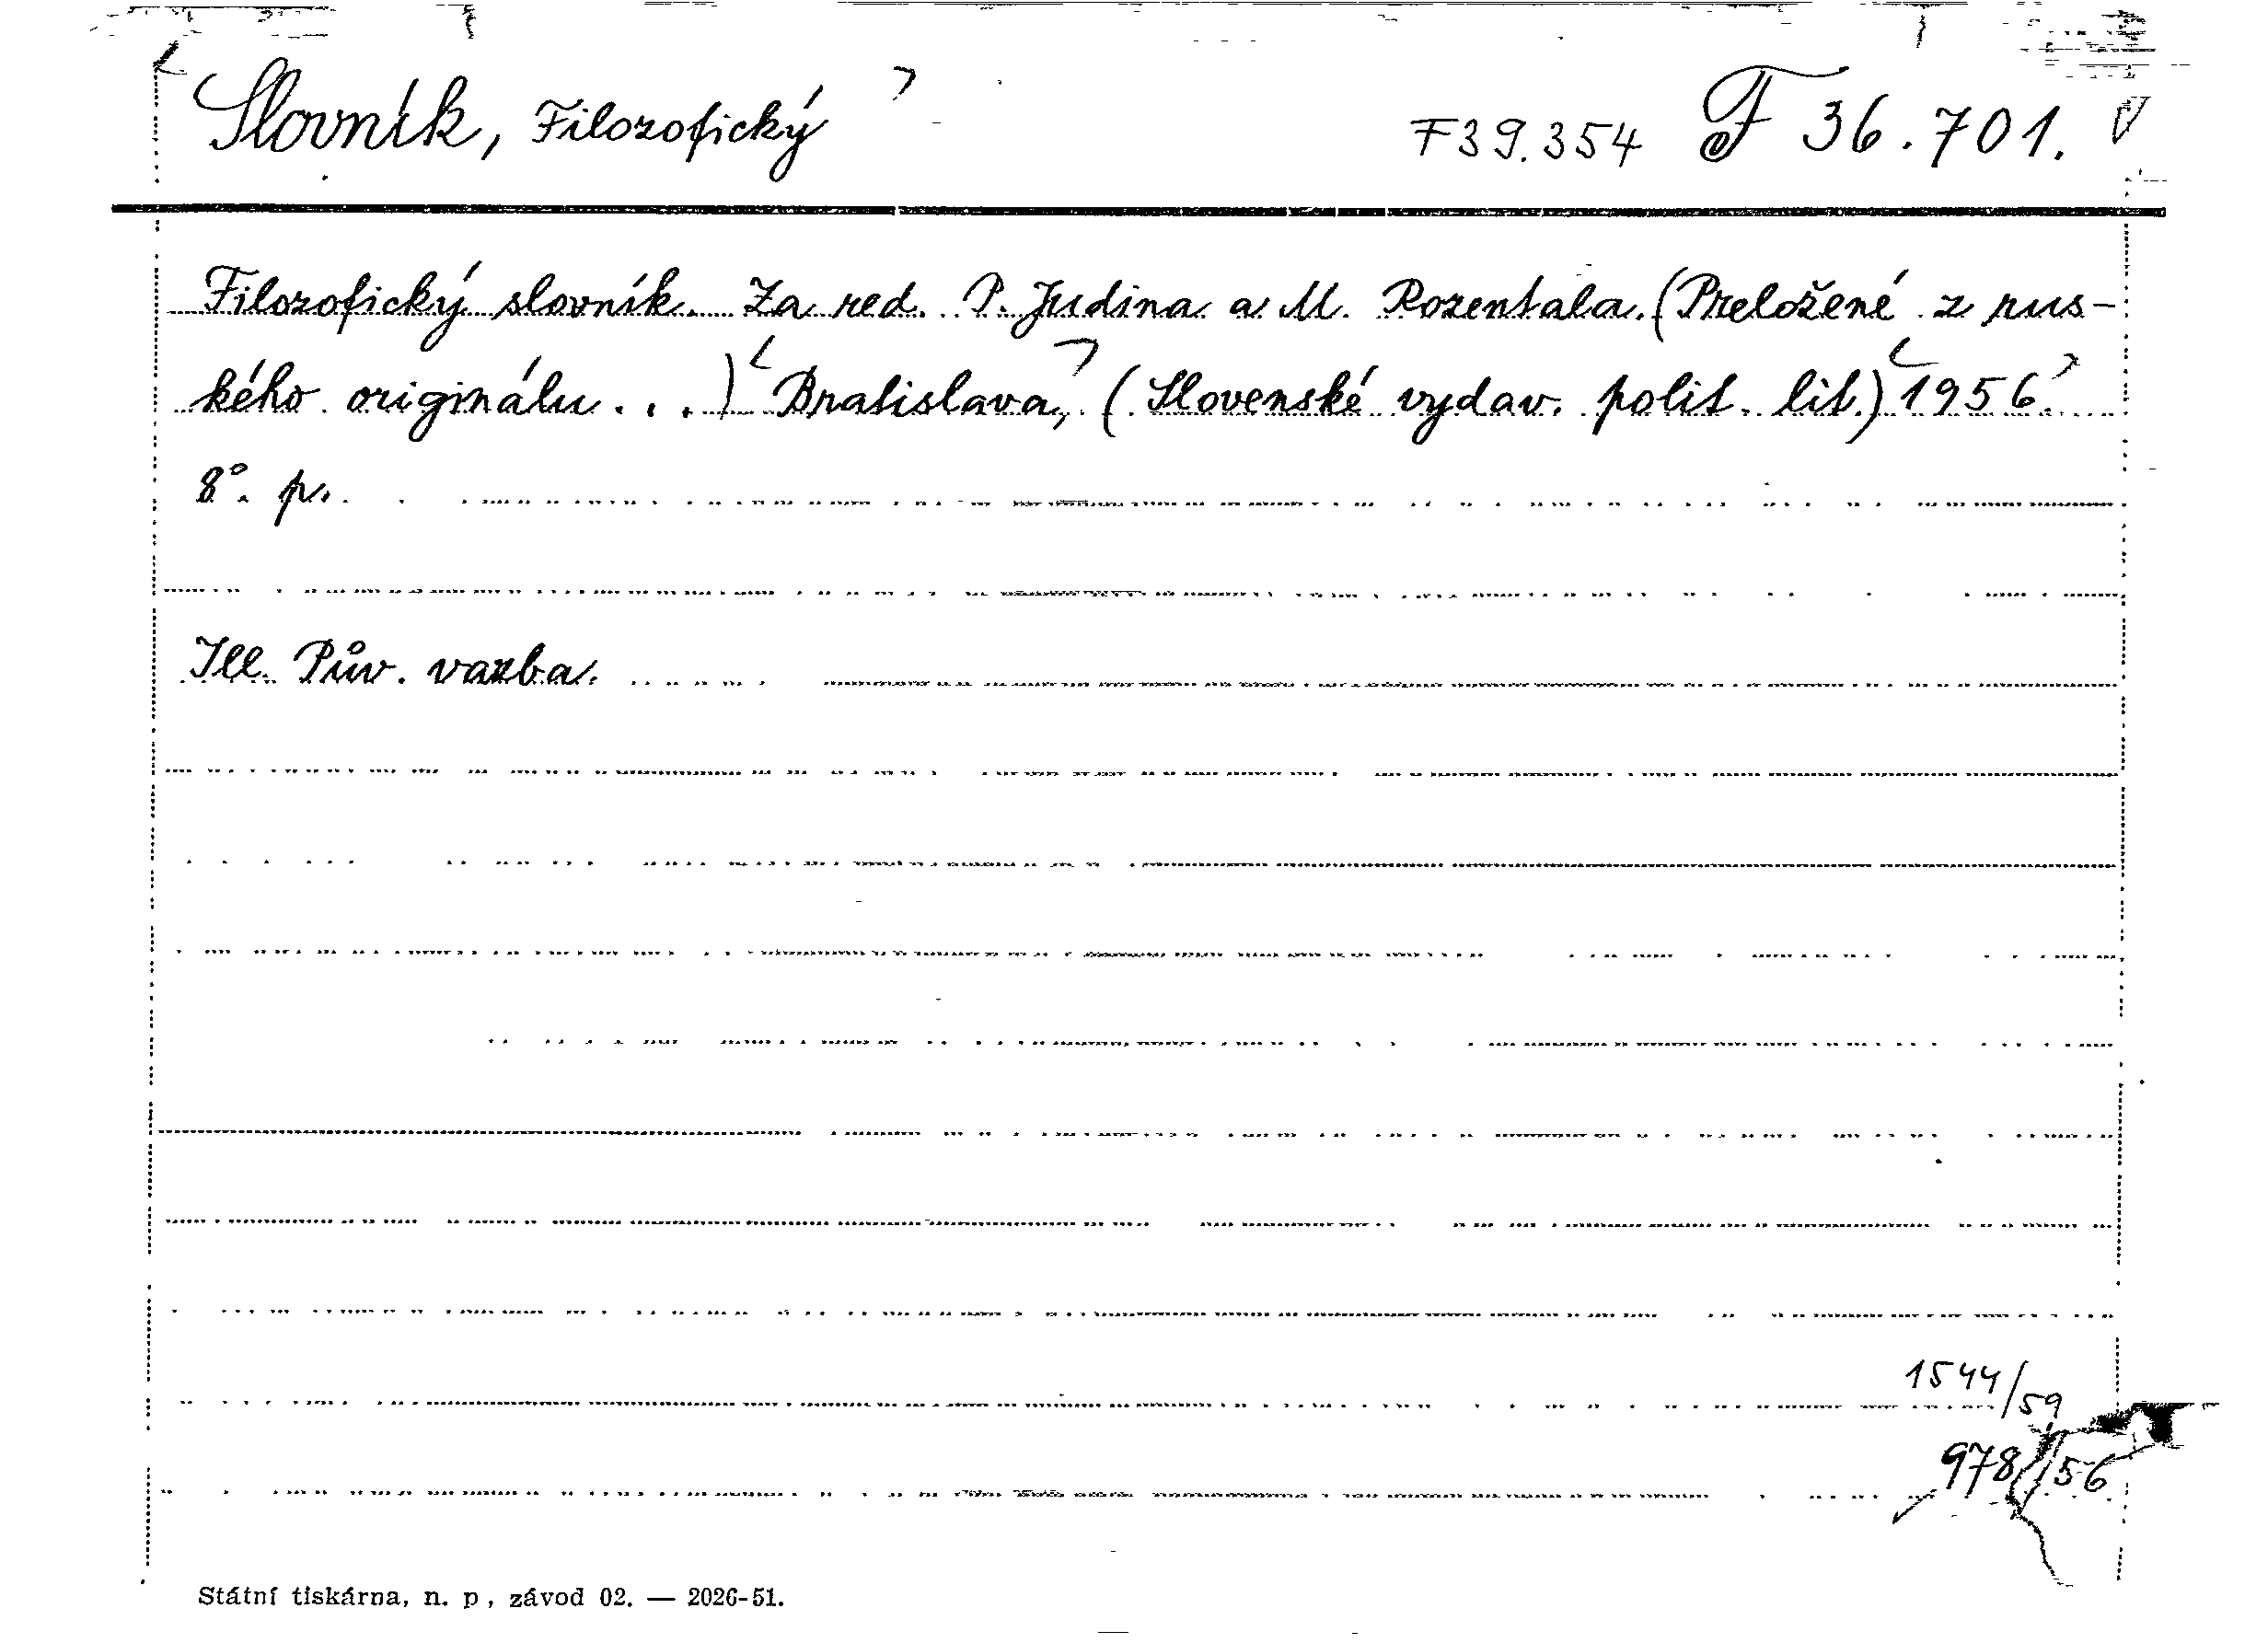 Slovník, Filozofický F39.354 F 36.701.
Filozofický slovník. Za red. P. Judina a M. Rozentala. (Preložené z rus-
kého originálu...) Bratislava, (Slovenské vydav. polit. lit.) 1956.
8°. p.
Ill. Pův. vazba.
1544/59
978/56
Státní tiskárna, n. p., závod 02. — 2026-51.